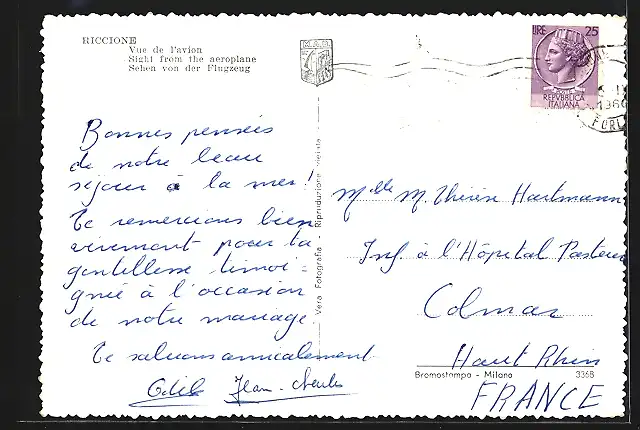 RICCIONE
Vue de l'avion
Sight from the aeroplane
Sehen von der Flugzeug
LIRE 25
REPVBBLICA
ITALIANA
Bonnes pensées
de notre beau
séjour à la mer!
Te remercions bien
vivement pour ta
gentillesse témoi
gnée à l'occasion
de notre mariage.
Te saluons amicalement
Odile Jean-Charles
Vera Fotografia - Riproduzione vietata
Melle M. Thérèse Hartmann
Inf. à l'Hôpital Pasteur
Colmar
Haut Rhin
Bromostampa - Milano 3368
FRANCE